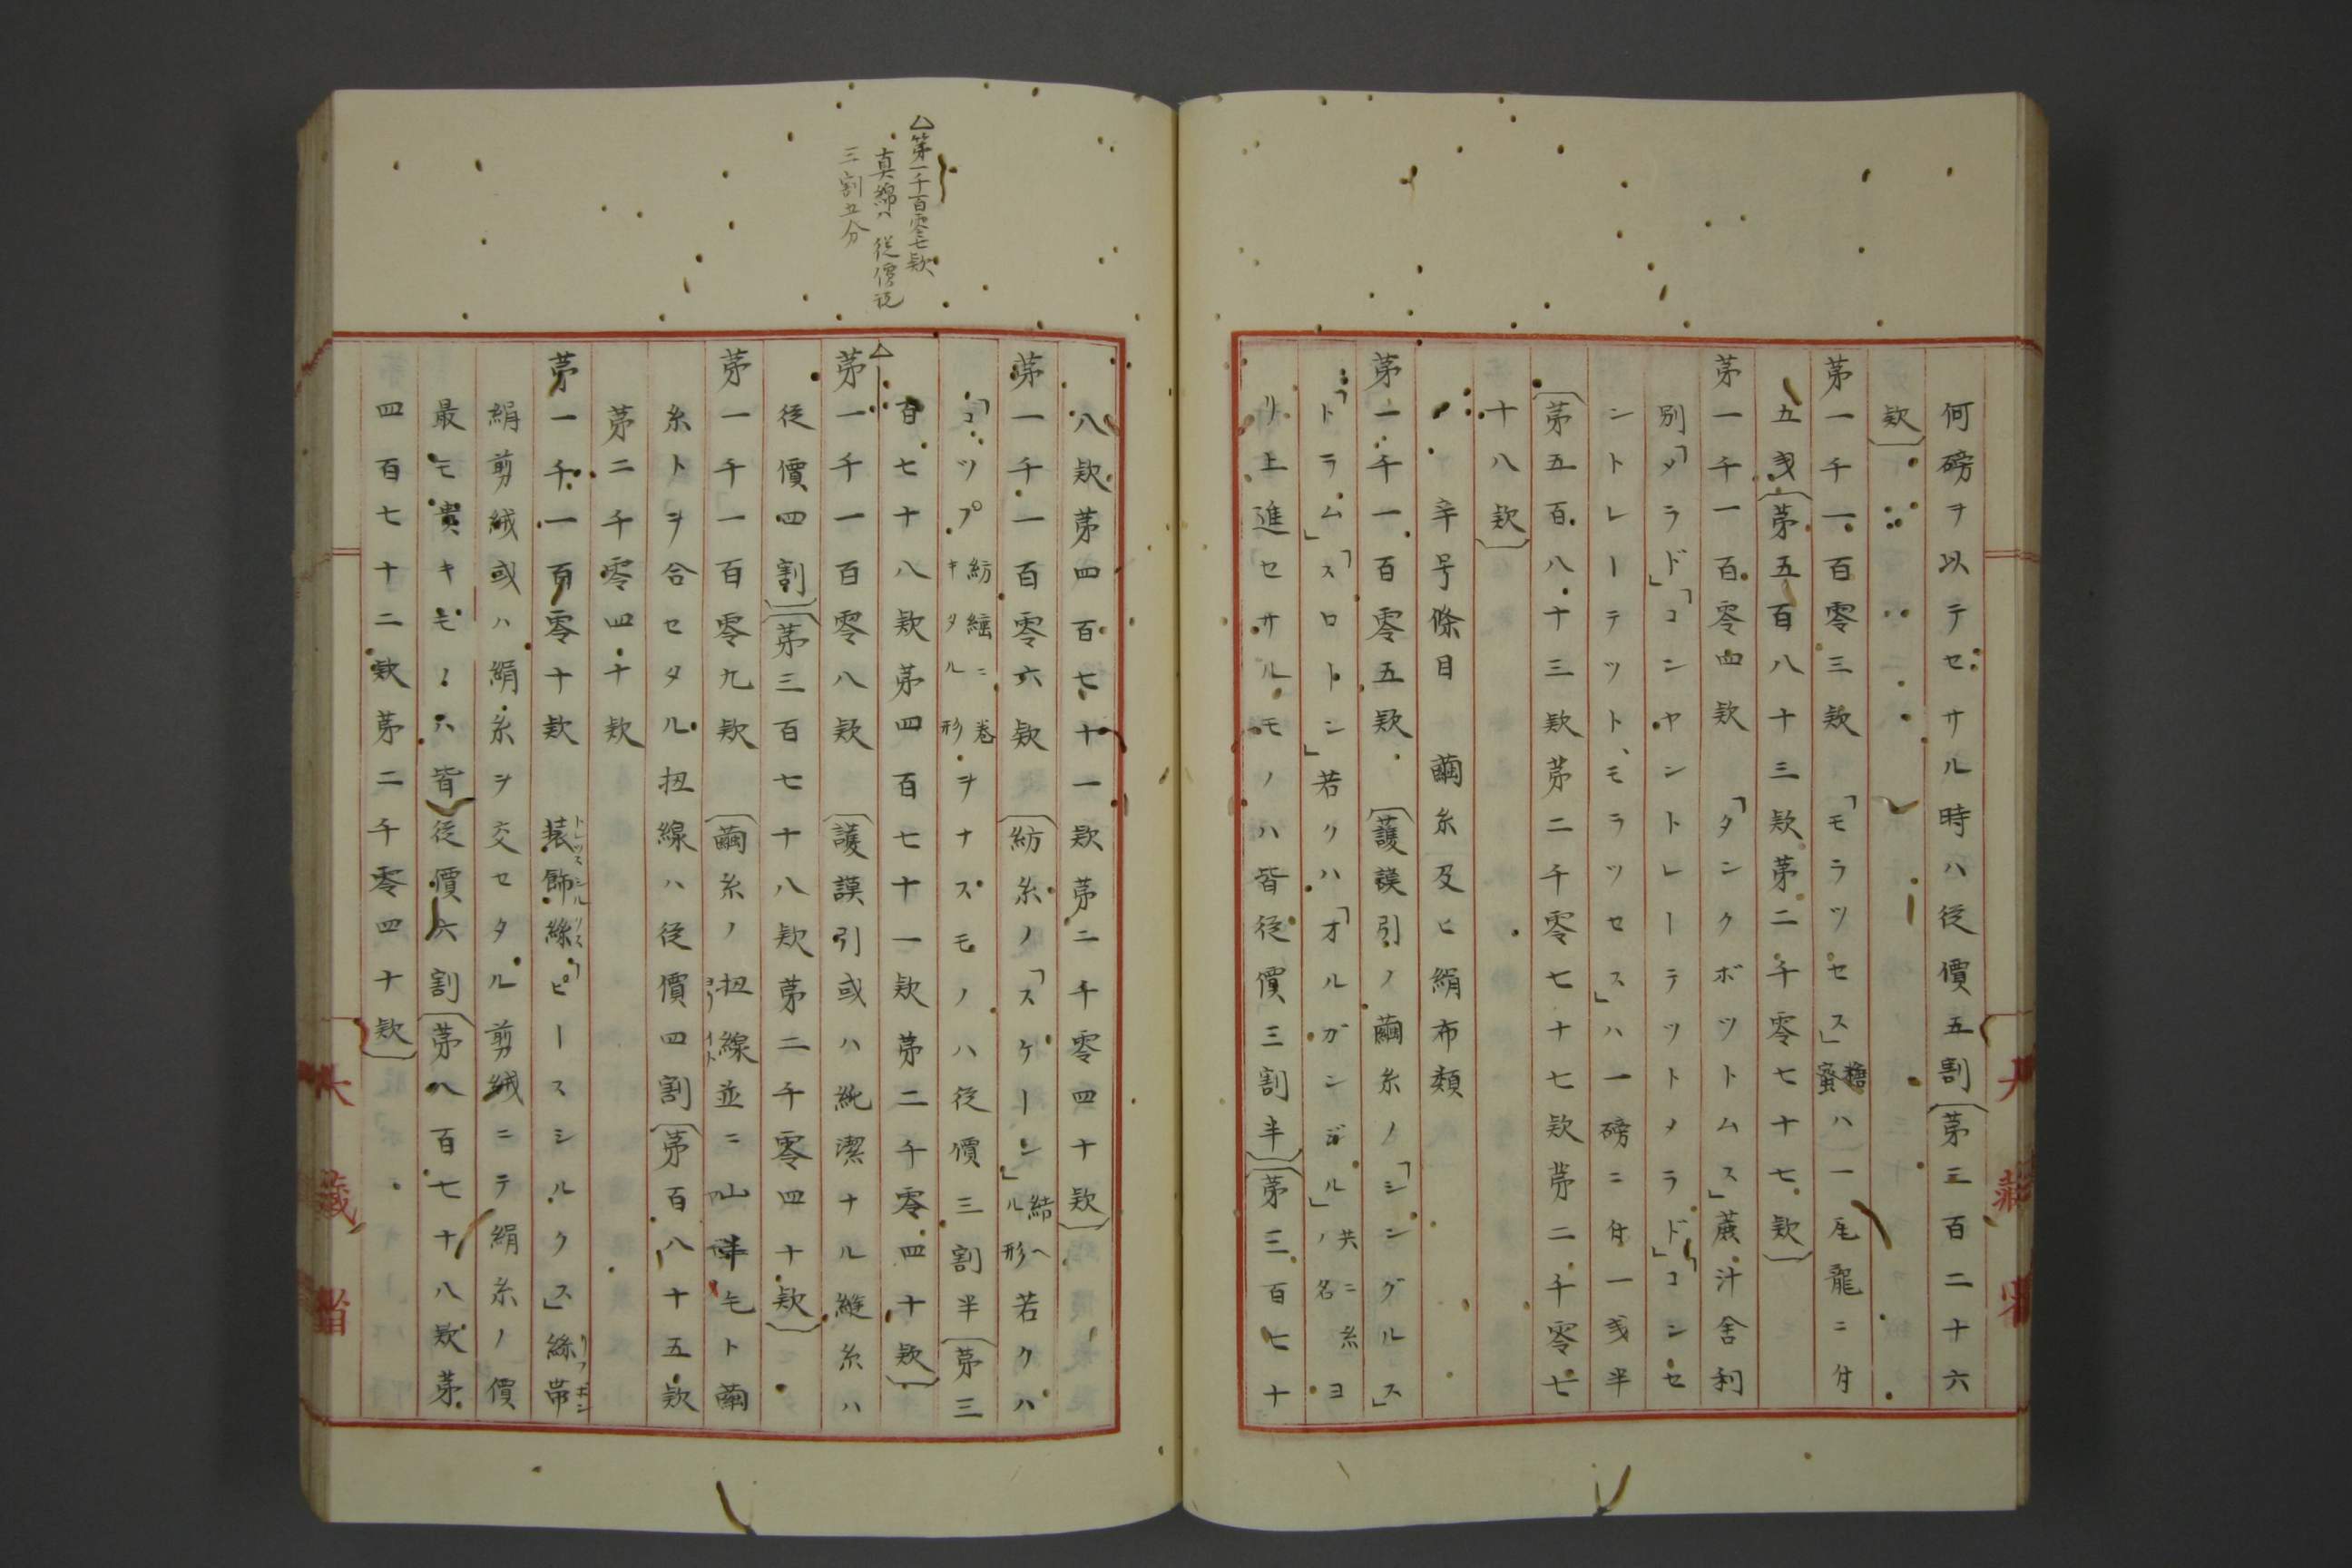 何磅ヲ以テセサル時ハ從價五割(第三百二十六
欵)
第一千一百零三欵 「モラツセス」糖蜜ハ一瓦龍ニ付
五戔(第五百八十三欵第二千零七十七欵)
第一千一百零四欵 「タンクボツトムス」蔗汁舎利
別「メラド」「コンヤントレーテツトメラド」「コンセ
ントレーテツト、モラツセス」ハ一磅ニ付一戔半
(第五百八十三欵第二千零七十七欵第二千零七
十八欵)
辛号條目 繭糸及ヒ絹布類
第一千一百零五欵 (護謨引ノ繭糸ノ「シングルス」
「トラム」「スロトン」若クハ「オルガンジル」共ニ糸ノ名ヨ
リ上進セサルモノハ皆從價三割半)(第三百七十
八欵第四百七十一欵第二千零四十欵)
第一千一百零六欵 (紡糸ノ「スケーン」結ヘル形若クハ
「コツプ紡繀ニ巻キタル形ヲナスモノハ從價三割半(第三
百七十八欵第四百七十一欵第二千零四十欵)
△
第一千一百零八欵 (護謨引或ハ純潔ナル縫糸ハ
從價四割)(第三百七十八欵第二千零四十欵)
第一千一百零九欵 (繭糸ノ扭線並ニ山羊毛ト繭
糸トヲ合セタル扭線ハ從價四割(第百八十五欵
第二千零四十欵
第一千一百零十欵 装飾絲「ピースシルクス」絲帯
絹剪絨或ハ絹糸ヲ交セタル剪絨ニテ絹糸ノ價
最モ貴キモノハ皆從價六割(第八百七十八欵第
四百七十二欵第二千零四十欵)
△第一千百零七欵
真綿ハ 從價税
三割五分